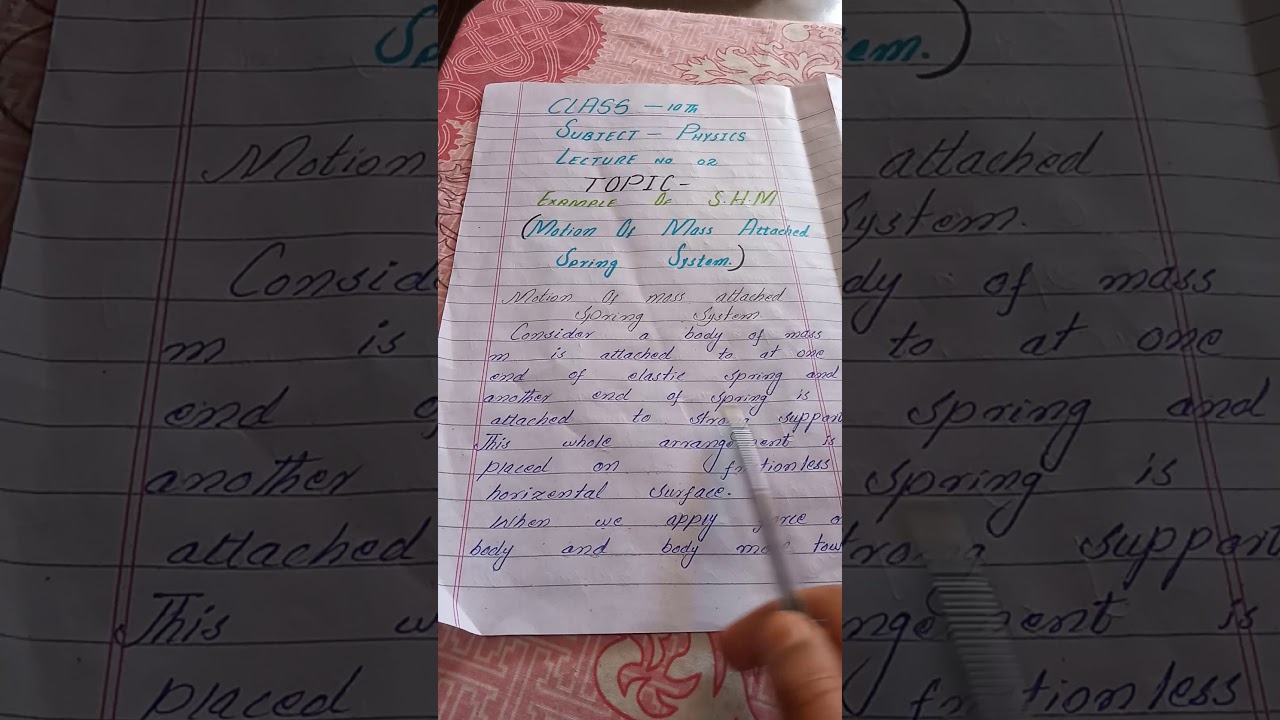 CLASS - 10Th
SUBJECT - PHYSICS
LECTURE No 02
TOPIC -
EXAMPLE OF S.H.M
(Motion Of Mass Attached
Spring System.)
Motion Of mass attached
Spring System
Consider a body of mass
m is attached to at one
end of elastic spring and
another end of spring is
attached to support
This whole is
placed on
horizental surface.
When we apply
body and body